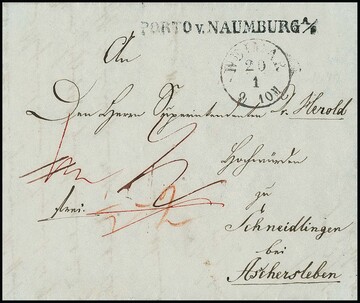 PORTO v. NAUMBURG A/S
WEIMAR
20
1
An
Den Herrn Superintendenten v. Herold
Hochwürden
frei
zu
Schneidlingen
bei
Aschersleben